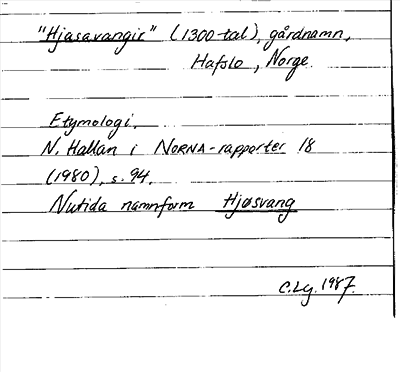 "Hjasavangir" (1300-tal), gårdnamn,
Hafslo, Norge.
Etymologi.
N. Hallan i NORNA-rapporter 18
(1980), s. 94.
Nutida namnform Hjøsvang
C. Lg. 1987.